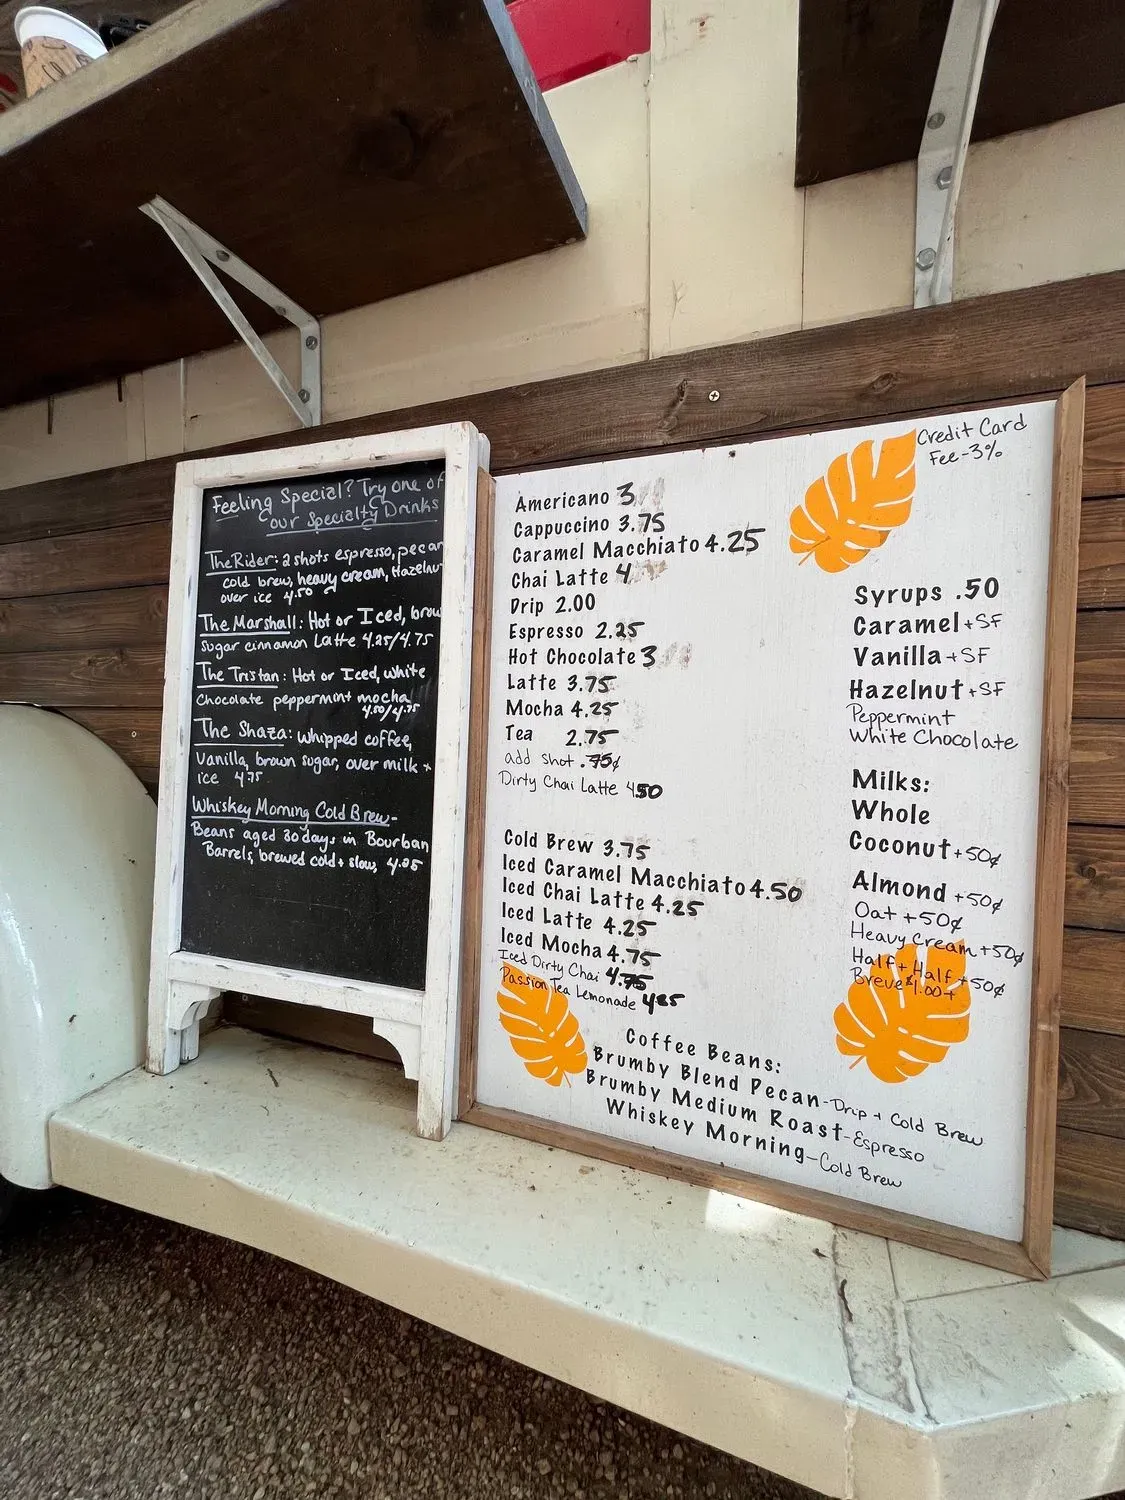 Feeling Special? Try one of
our Specialty Drinks
The Rider: 2 shots espresso, pecan
cold brew, heavy cream, Hazelnu
over ice 4.50
The Marshall: Hot or Iced, brow
sugar cinnamon Latte 4.25/4.75
The Tristan: Hot or Iced, white
chocolate peppermint mocha
4.50/4.75
The Shaza: whipped coffee,
Vanilla, brown sugar, over milk +
ice 4.75
Whiskey Morning Cold Brew-
Beans aged 30 days in Bourban
Barrels, brewed cold + slow,
Credit Card
Fee-3%
Americano 3
Cappuccino 3.75
Caramel Macchiato 4.25
Chai Latte 4
Drip 2.00
Espresso 2.25
Hot Chocolate 3
Latte 3.75
Mocha 4.25
Tea 2.75
add shot .75¢
Dirty Chai Latte 4.50
Cold Brew 3.75
Iced Caramel Macchiato 4.50
Iced Chai Latte 4.25
Iced Latte 4.25
Iced Mocha 4.75
Iced Dirty Chai 4.75
Passion Tea Lemonade
Syrups .50
Caramel + SF
Vanilla + SF
Hazelnut + SF
Peppermint
White Chocolate
Milks:
Whole
Coconut +50¢
Almond +50¢
Oat +50¢
Heavy Cream +50¢
Half + Half +50¢
Breve $1.00+
Coffee Beans:
Brumby Blend Pecan-Drip + Cold Brew
Brumby Medium Roast-Espresso
Whiskey Morning-Cold Brew